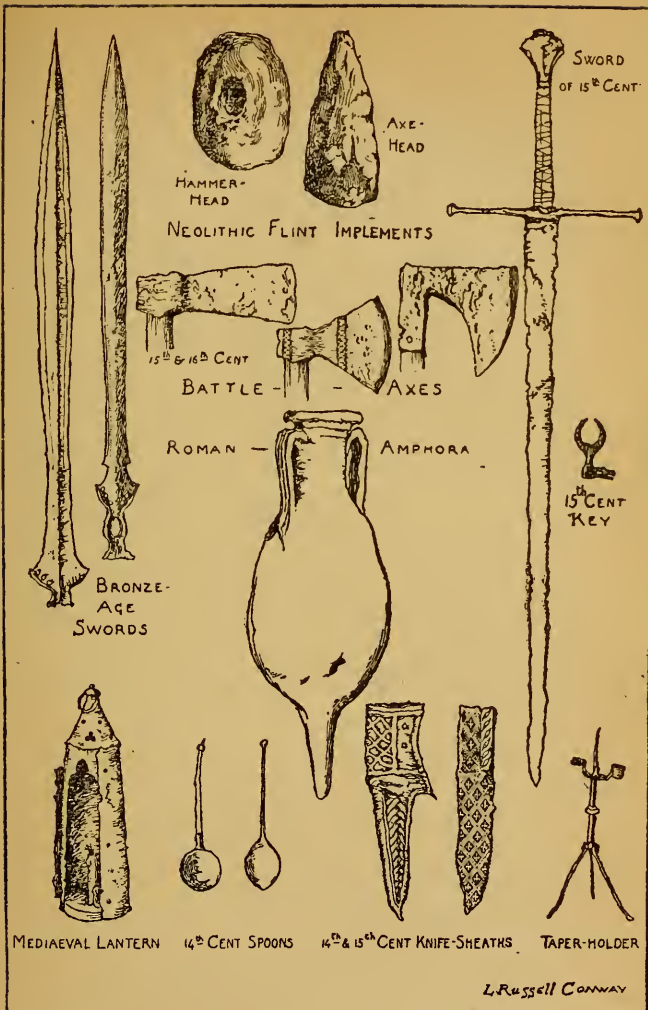 SWORD
OF 15th CENT.
AXE-
HEAD
HAMMER-
HEAD
NEOLITHIC FLINT IMPLEMENTS
15th & 16th CENT
BATTLE - - AXES
ROMAN — AMPHORA
15th CENT
KEY
BRONZE-
AGE
SWORDS
MEDIAEVAL LANTERN
14th CENT SPOONS
14th & 15th CENT KNIFE-SHEATHS
TAPER-HOLDER
L. Russell CONWAY